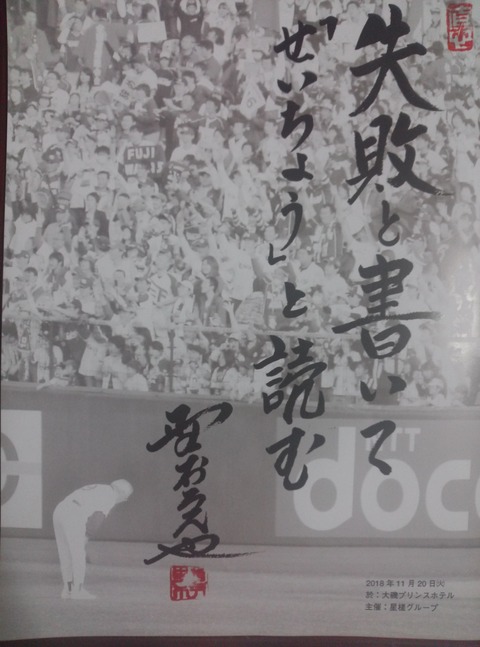 失敗と書いて
「せいちょう」と読む
FUJI
docc
2018年11月20日火
於：大磯プリンスホテル
主催：星槎グループ